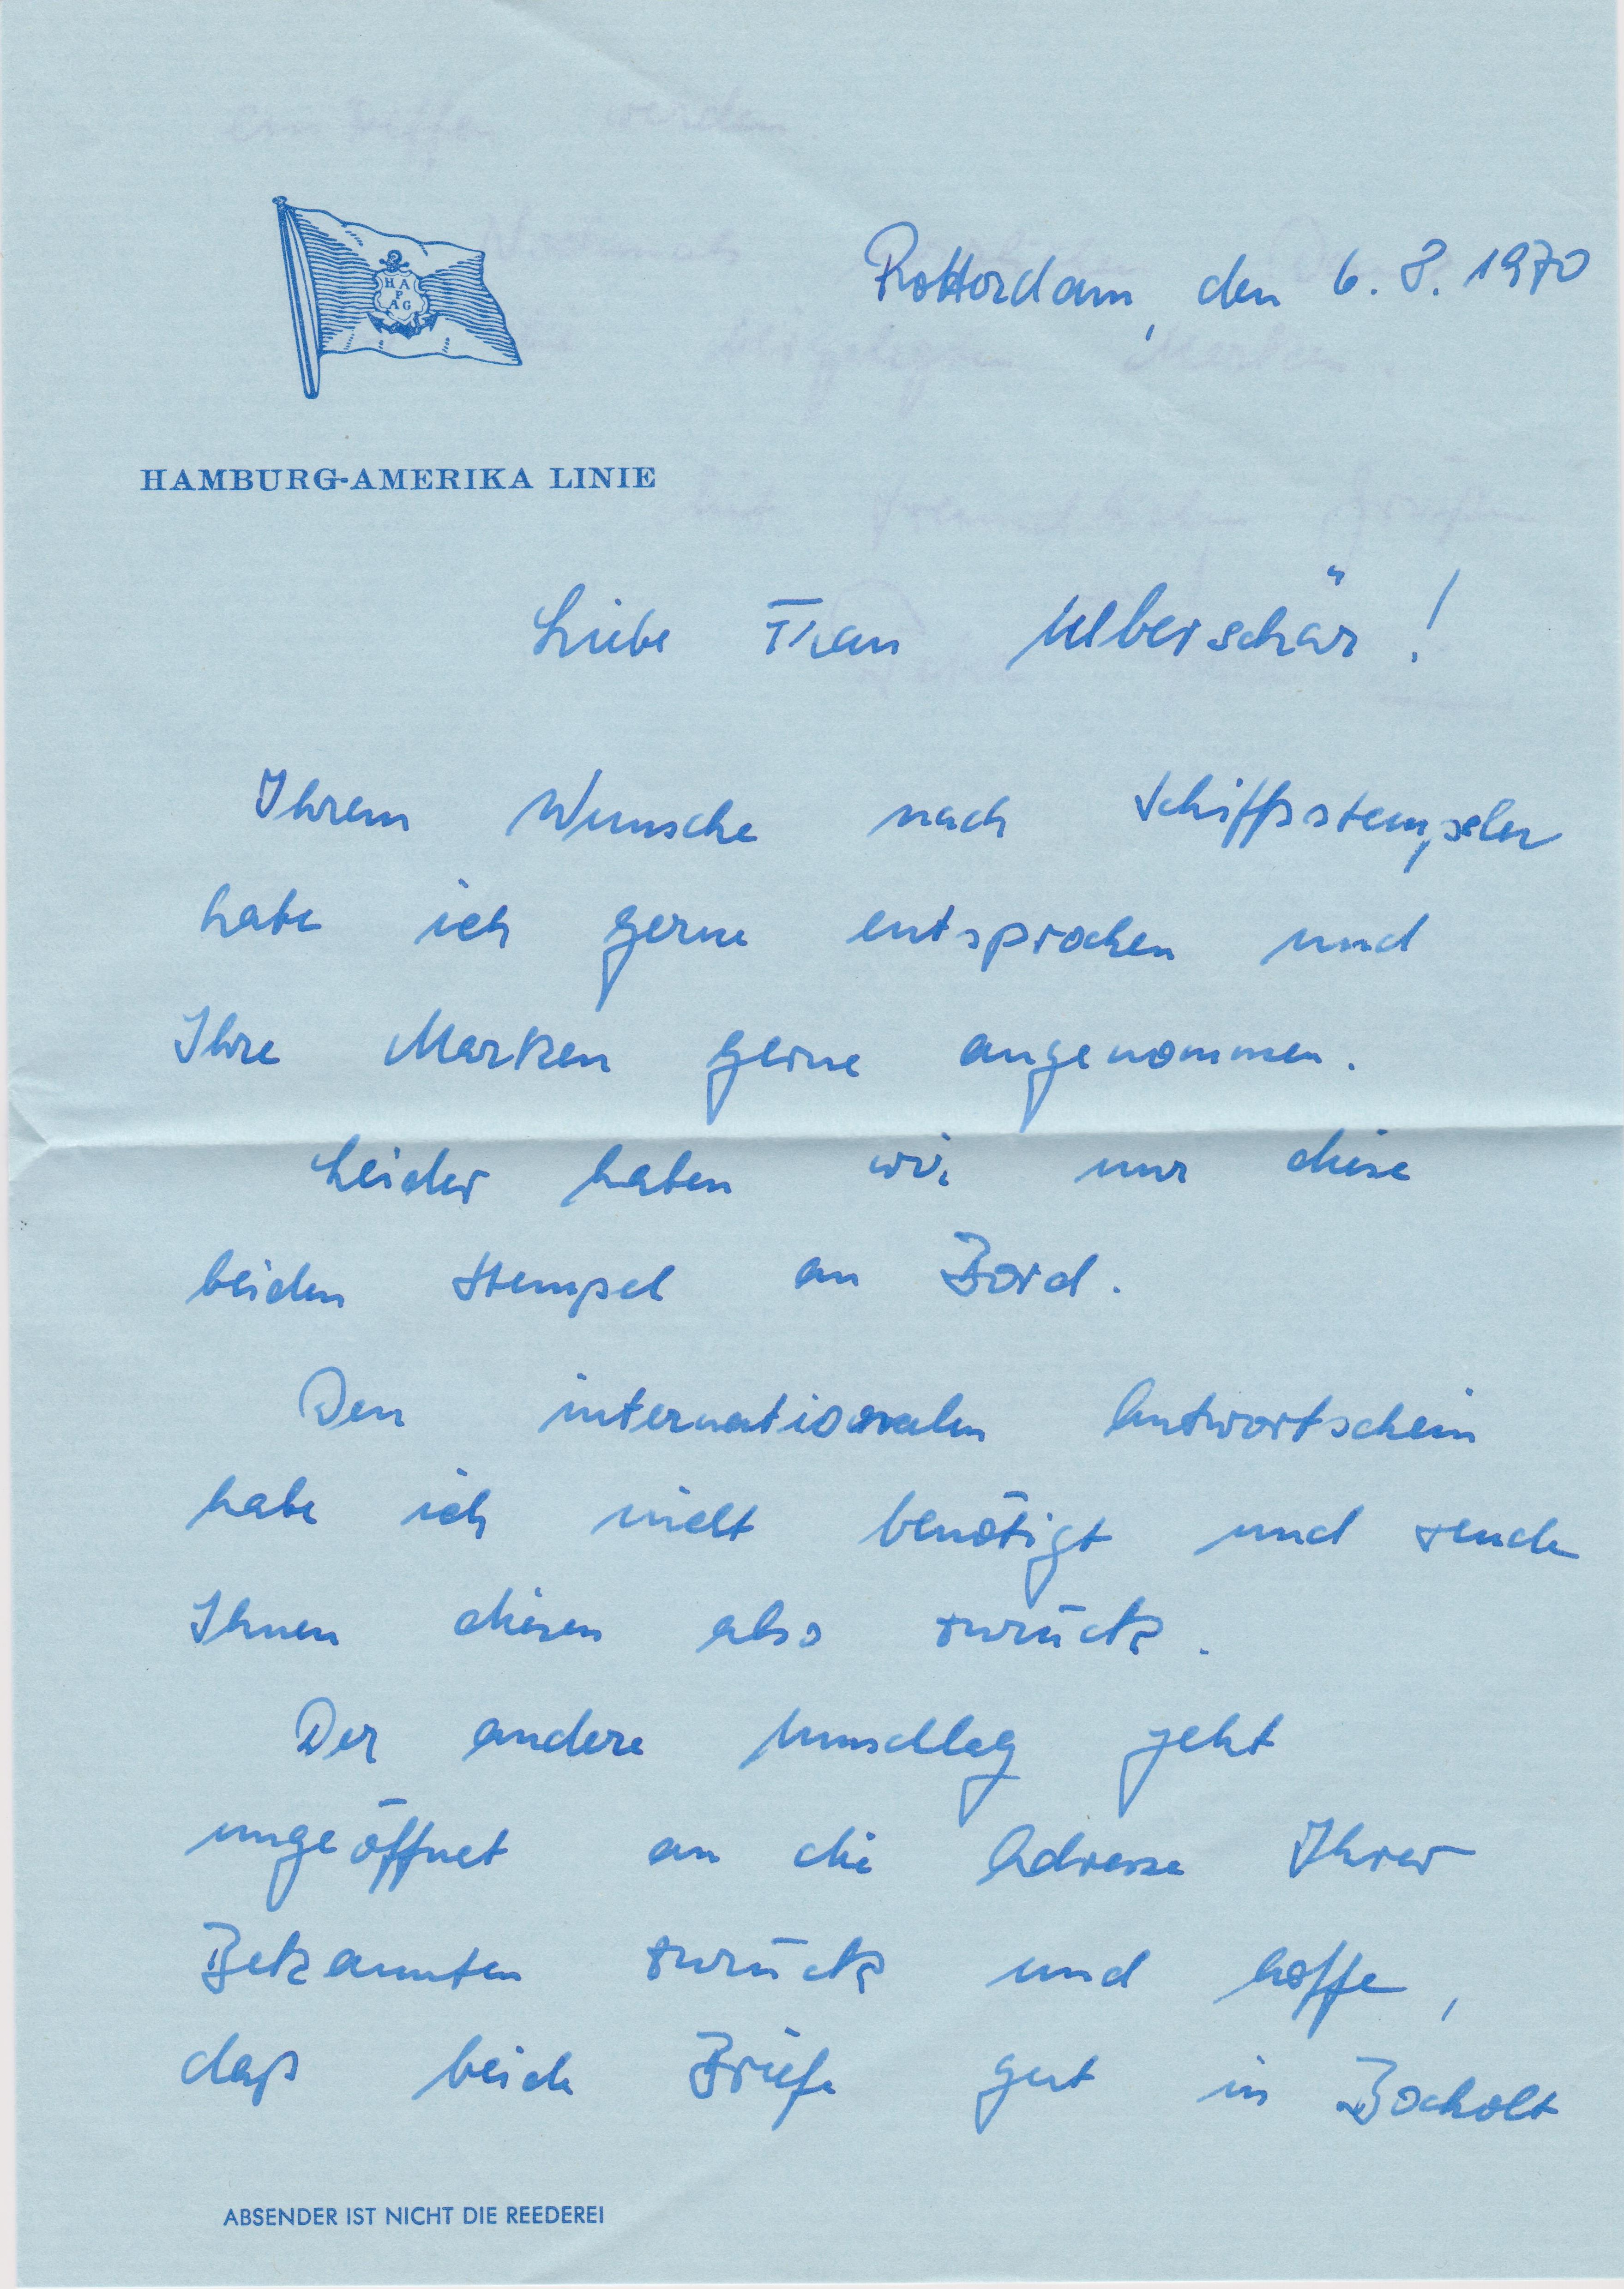 Rotterdam, den 6. 8. 1970
H A
P
A G
HAMBURG-AMERIKA LINIE
Liebe Frau Ueberschär!
Ihrem Wunsche nach Schiffsstempeln
habe ich gerne entsprochen und
Ihre Marken gerne angenommen.
Leider haben wir nur diese
beiden Stempel an Bord.
Den internationalen Antwortschein
habe ich nicht benötigt und sende
Ihnen diesen also zurück.
Der andere Umschlag geht
ungeöffnet an die Adresse Ihrer
Bekannten zurück und hoffe,
daß beide Briefe gut in Bocholt
ABSENDER IST NICHT DIE REEDEREI